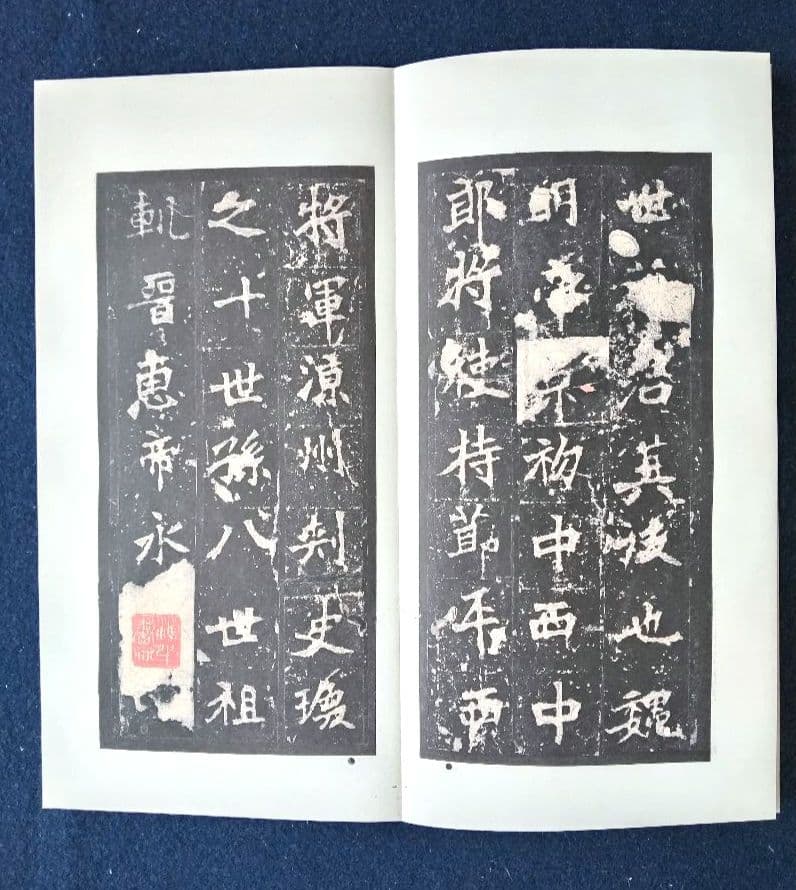 世其後也魏
明帝初中西中
郎將使持節平西
將軍涼州刾史瑍
之十世孫八世祖
軌晉惠帝永